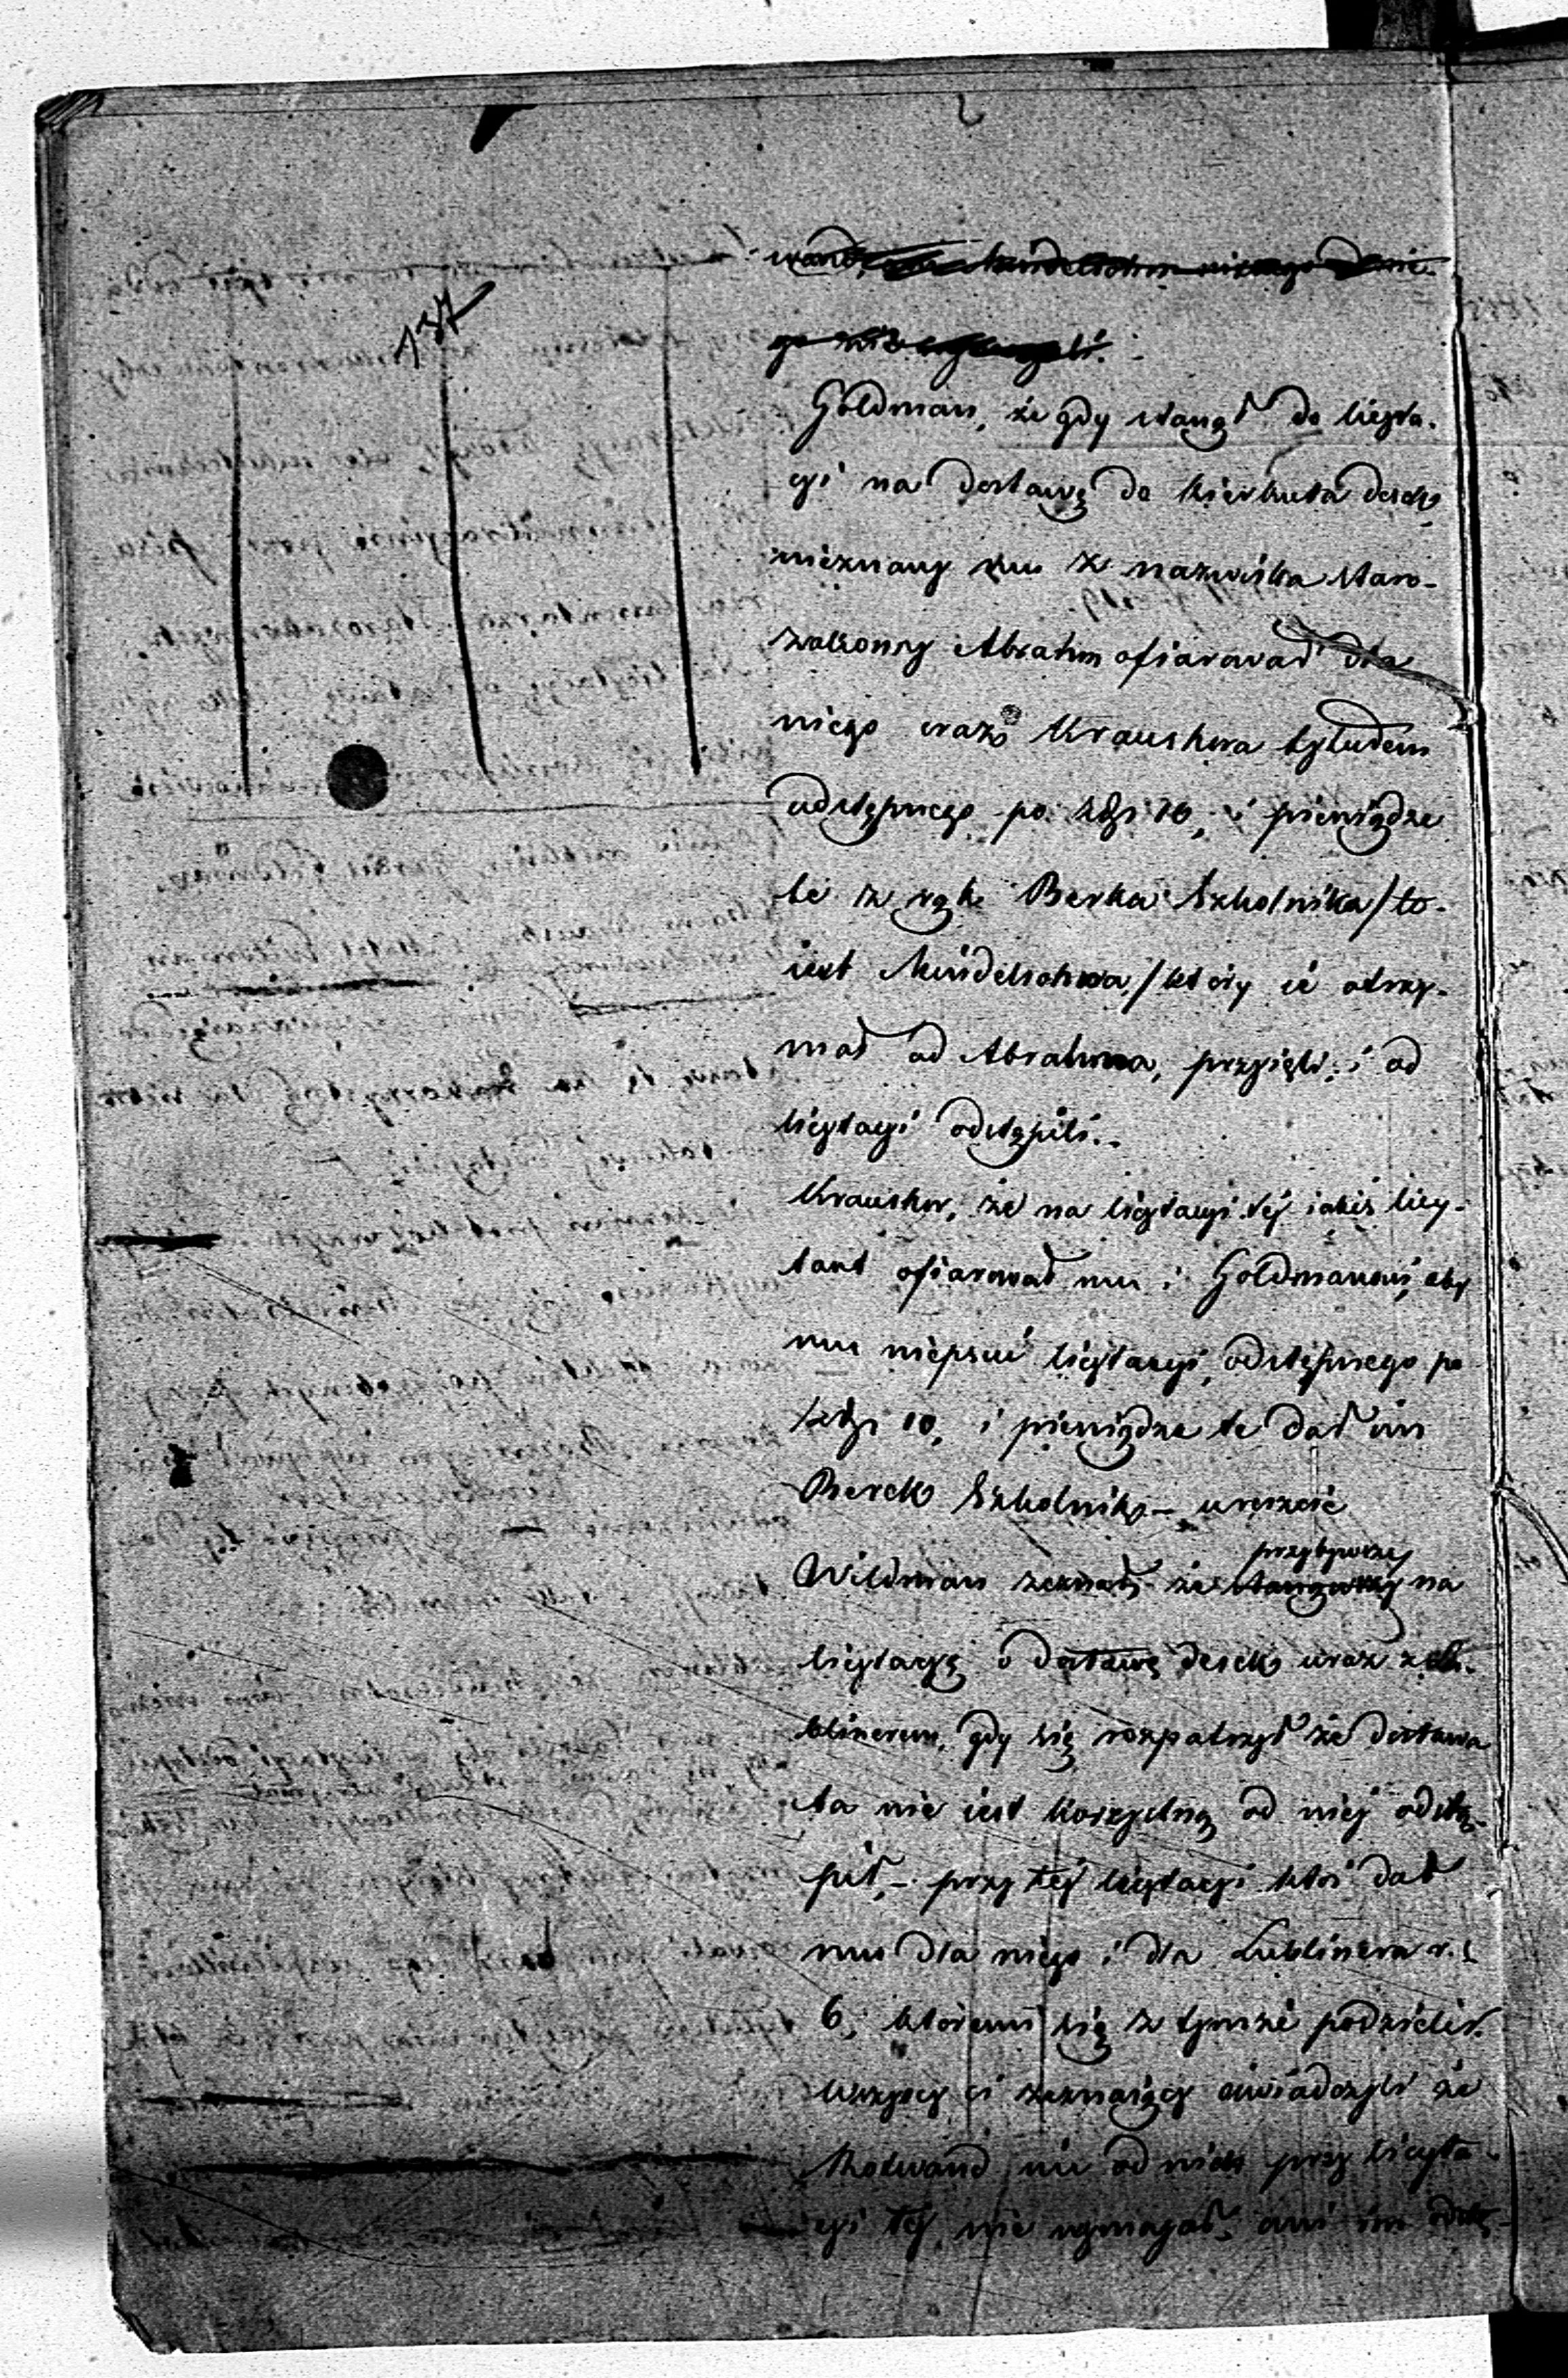 137
Goldman, że gdy stanął do licyta-
cyi na dostawę do kierkuta desek
nieznany mu z nazwiska staro-
zakonny Abrahm ofiarował dla
niego wraz Kraushora tytułem
odstępnego po złp. 10, i pieniądze
te z rąk Berka Szkolnika /to-
iest Mindelsohna,/ który ie otrzy-
mał od Abrahma, przyięli, i od
licytacyi odstąpili.-
Kraushor, że na licytacyi tej iakiś licy-
tant ofiarował mu i Goldmanowi, aby
mu niepsuć licytacyi, odstępnego po
złp. 10, i pieniądze te dał im
Berek Szkolnik - wreszcie
przybywszy
Wildman zeznał, że stanąwszy na
licytacyę o dostawę desek wraz z Lu-
blinerem, gdy się rozpatrzył że dostawa
ta nie iest korzystną od niej odstą-
pił,- przy tej licytacyi ktoś dał
mu dla niego i dla Lublinera r.s.
6, któremi się z tymże podzielił.
Wszyscy ci zeznaiący oświadczyli że
Rotwand nic od nich przy licyta-
cyi tej nie wymagał, ani im odstę-